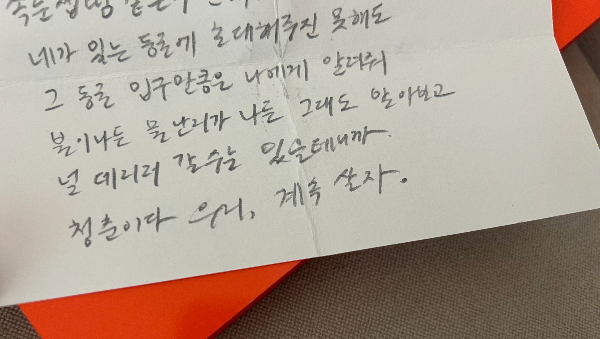 네가 있는 동굴에 초대해주진 못해도
그 동굴 입구만큼은 나에게 알려줘
불이나든 물난리가 나든 그래도 알아보고
널 데리러 갈수는 있을테니까.
청춘이다 우리, 계속 살자.